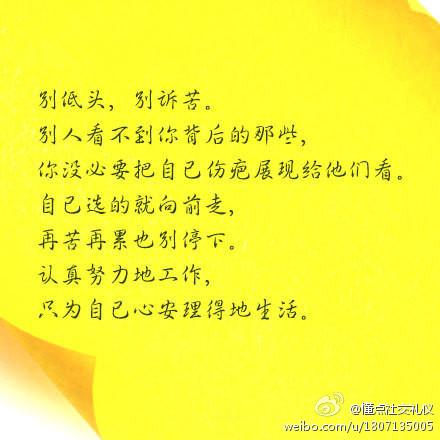 别低头，别诉苦。
别人看不到你背后的那些，
你没必要把自己伤疤展现给他们看。
自己选的就向前走，
再苦再累也别停下。
认真努力地工作，
只为自己心安理得地生活。
@懂点社交礼仪
weibo.com/u/1807135005